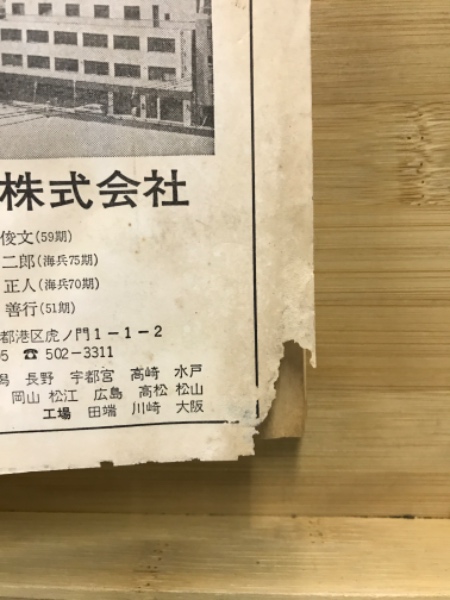 株式会社
俊文(59期)
二郎(海兵75期)
正人(海兵70期)
善行(51期)
都港区虎ノ門1-1-2
05 ☎502-3311
潟 長野 宇都宮 高崎 水戸
岡山 松江 広島 高松 松山
工場 田端 川崎 大阪